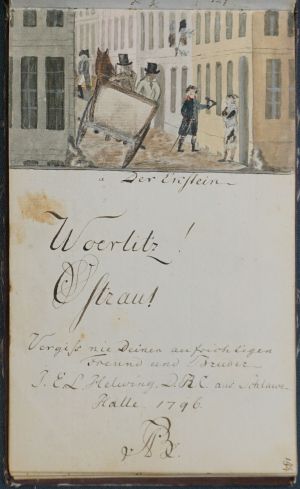 Der Eckstein
Woerlitz!
Ostrau!
Vergiß nie Deinen aufrichtigen
Freund und Bruder
J. E. L. Helwing, D. R. C. aus Schlawe
Halle 1796.